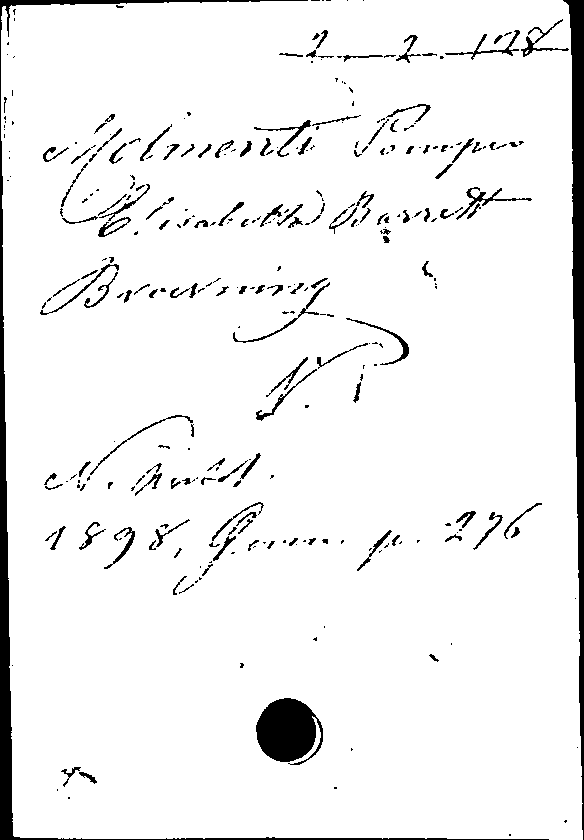 2. 2. 128
Molmenti Pompeo
Elisabetta Barrett
Browning
N. Antol.
1898, Genn. p. 276